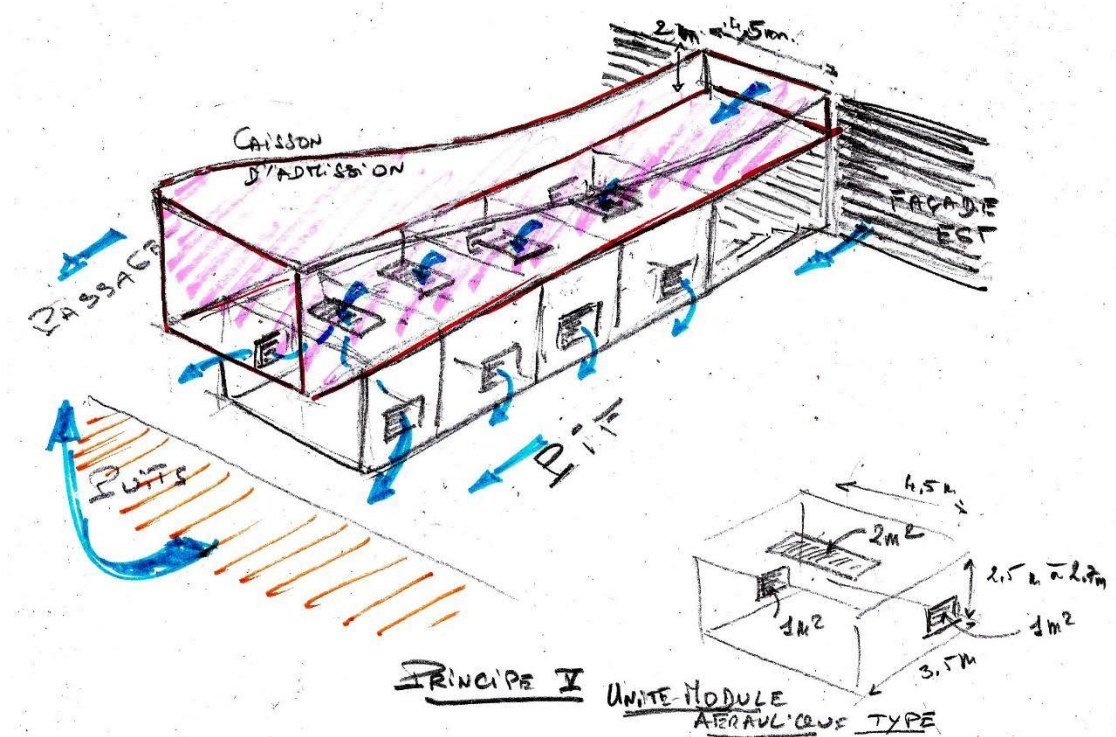 2 m.
4,5 m.
CAISSON
D'ADMISSION
FAÇADE
EST
PASSAGE
PUITS
4,5 m
2m²
2,5 m à 2,7m
1m²
1m²
3,5m
PRINCIPE V
UNITE-MODULE
AERAULIQUE TYPE